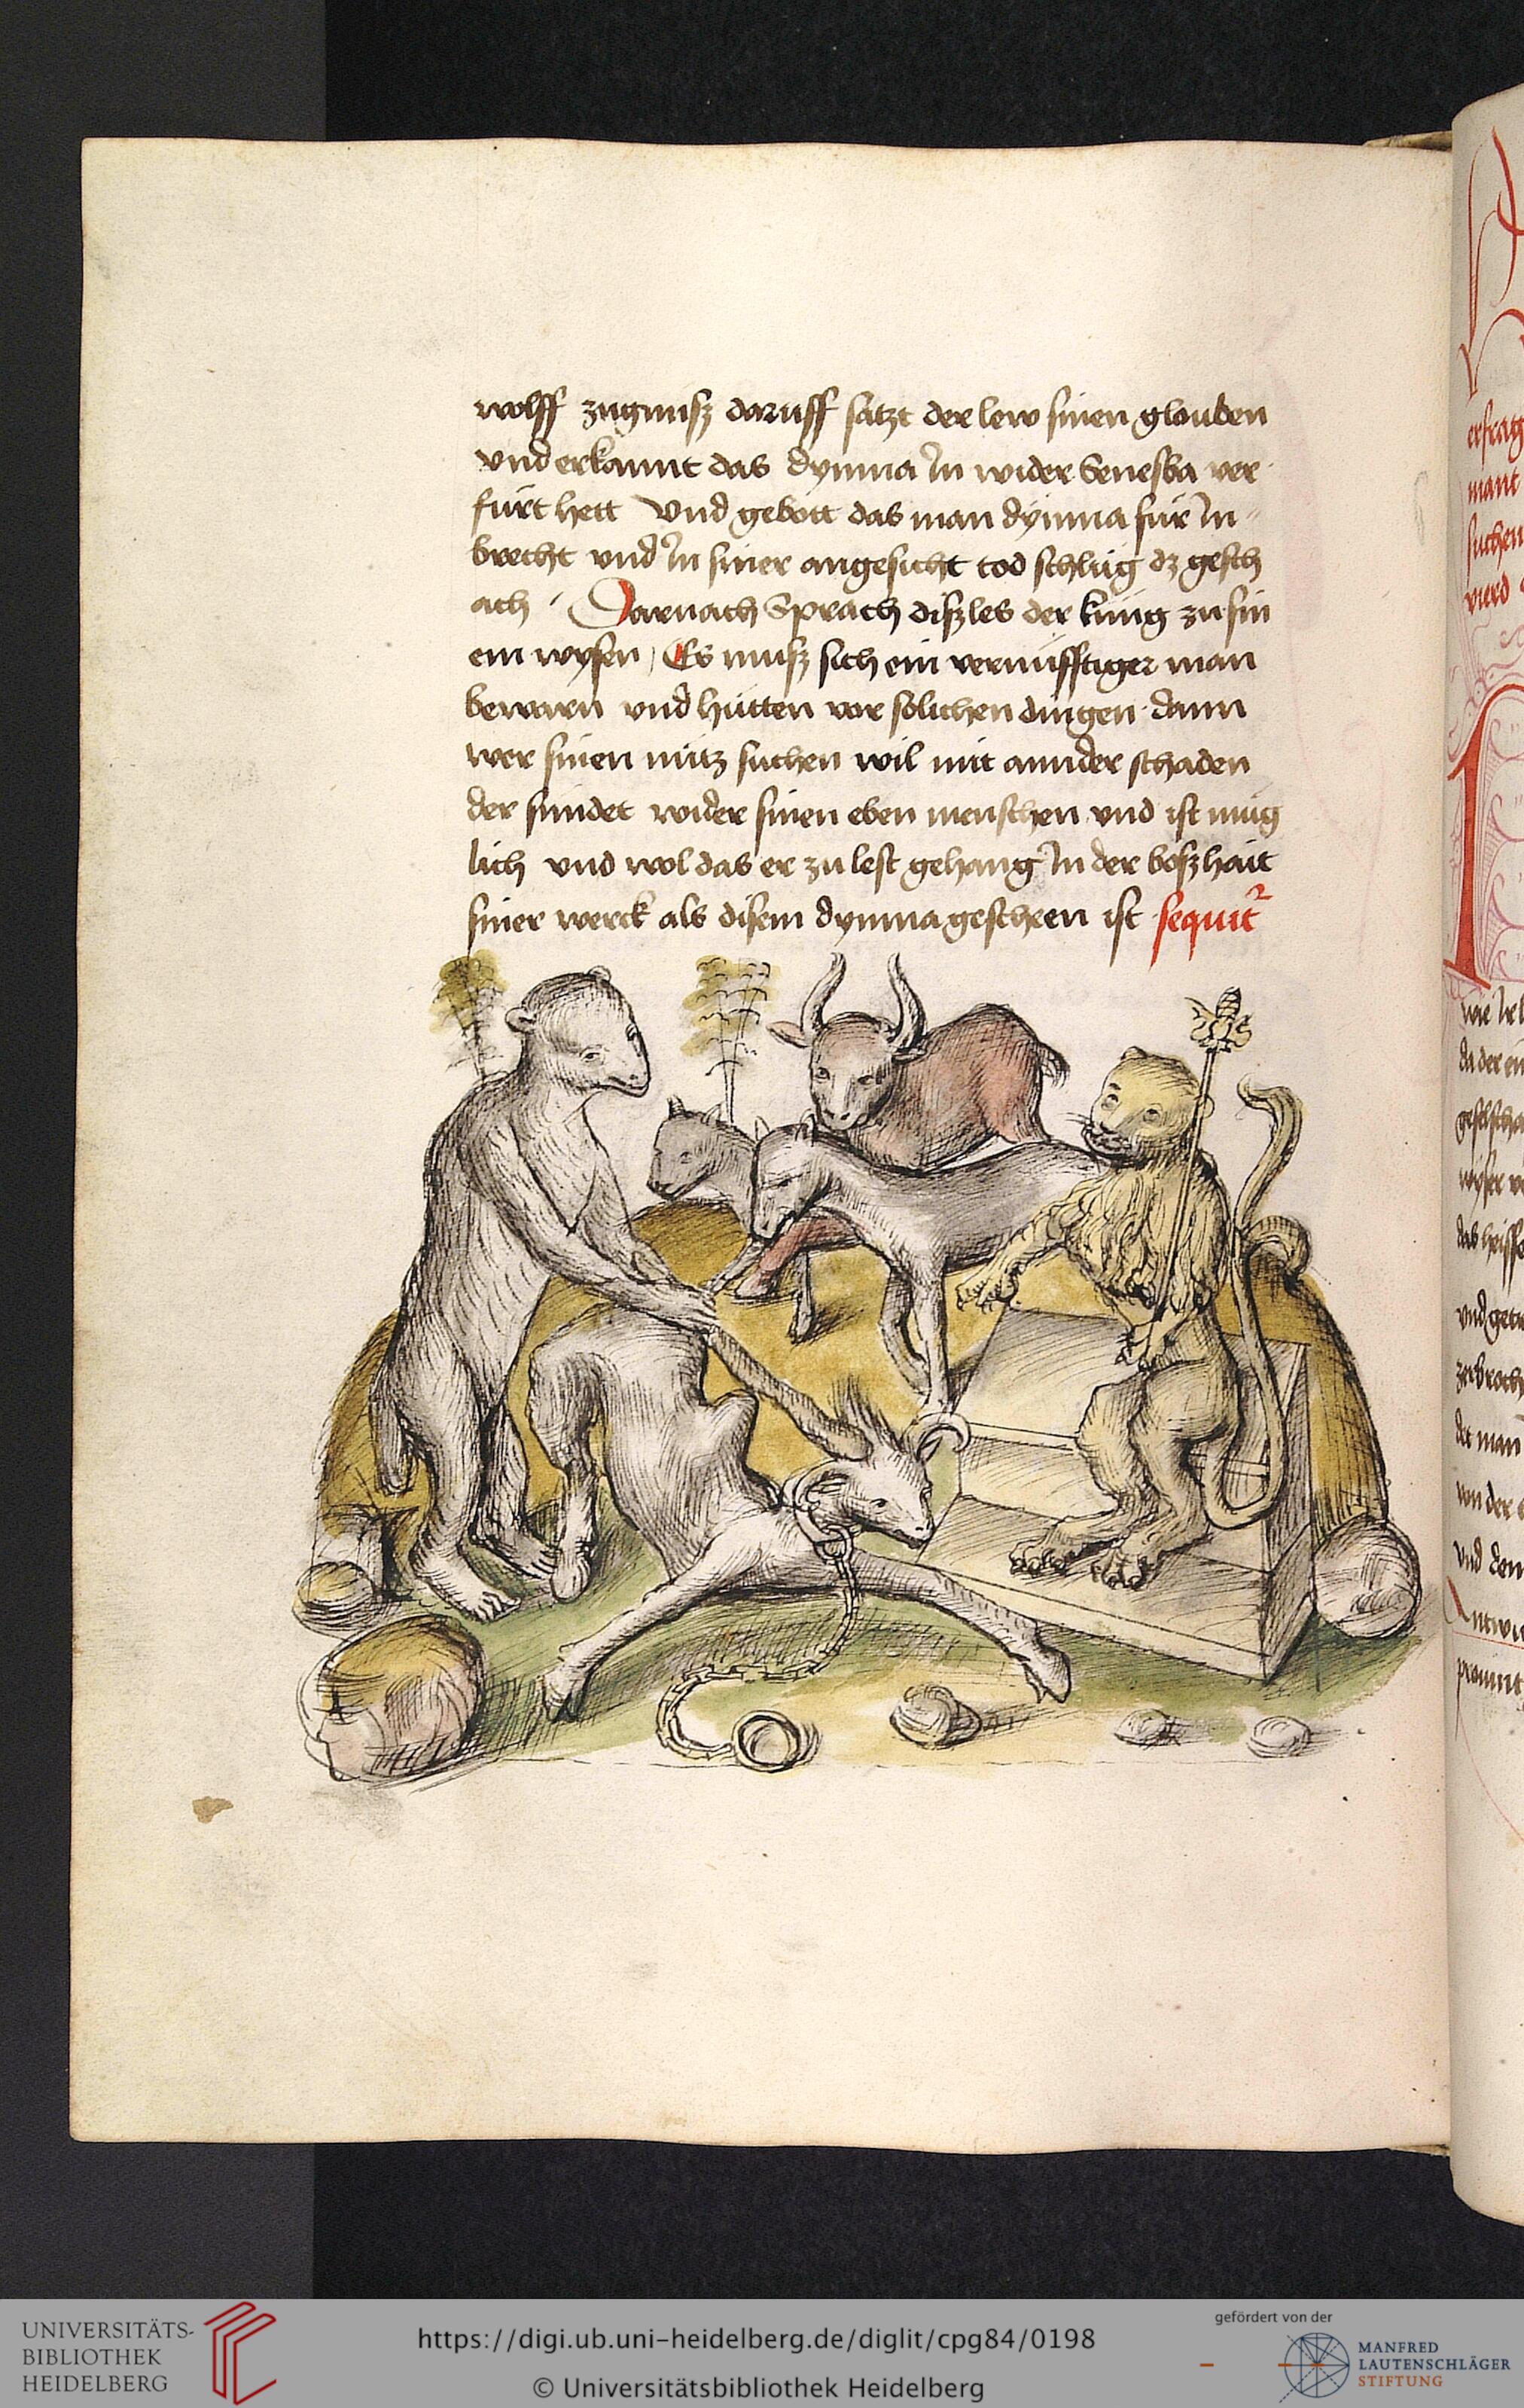 wolff zugnusz daruff satzt der lew sinen glouben
vnd erkannt das dymna In wider Senesba ver
fürt hett Vnd gebott das man dymna für In
brecht vnd In siner angesicht tod schlüg dz gesch
ach Darnach Sprach diszles der küng zu sin
em wysen / Es musz sich ein vernüfftiger man
bewarn vnd hütten vor solichen dingen dann
wer sinen nütz suchen wil mit annder schaden
der sündet wider sinen eben menschen vnd ist müg
lich vnd wol das er zu lest gehang In der boszhait
siner werck als disem dymna gescheen ist sequit
erfrag
mant
suchen
wie
da der ein
das
vnd
der man
von der
vnd den
UNIVERSITÄTS-
BIBLIOTHEK
HEIDELBERG
https://digi.ub.uni-heidelberg.de/diglit/cpg84/0198
© Universitätsbibliothek Heidelberg
gefördert von der
MANFRED
LAUTENSCHLÄGER
STIFTUNG